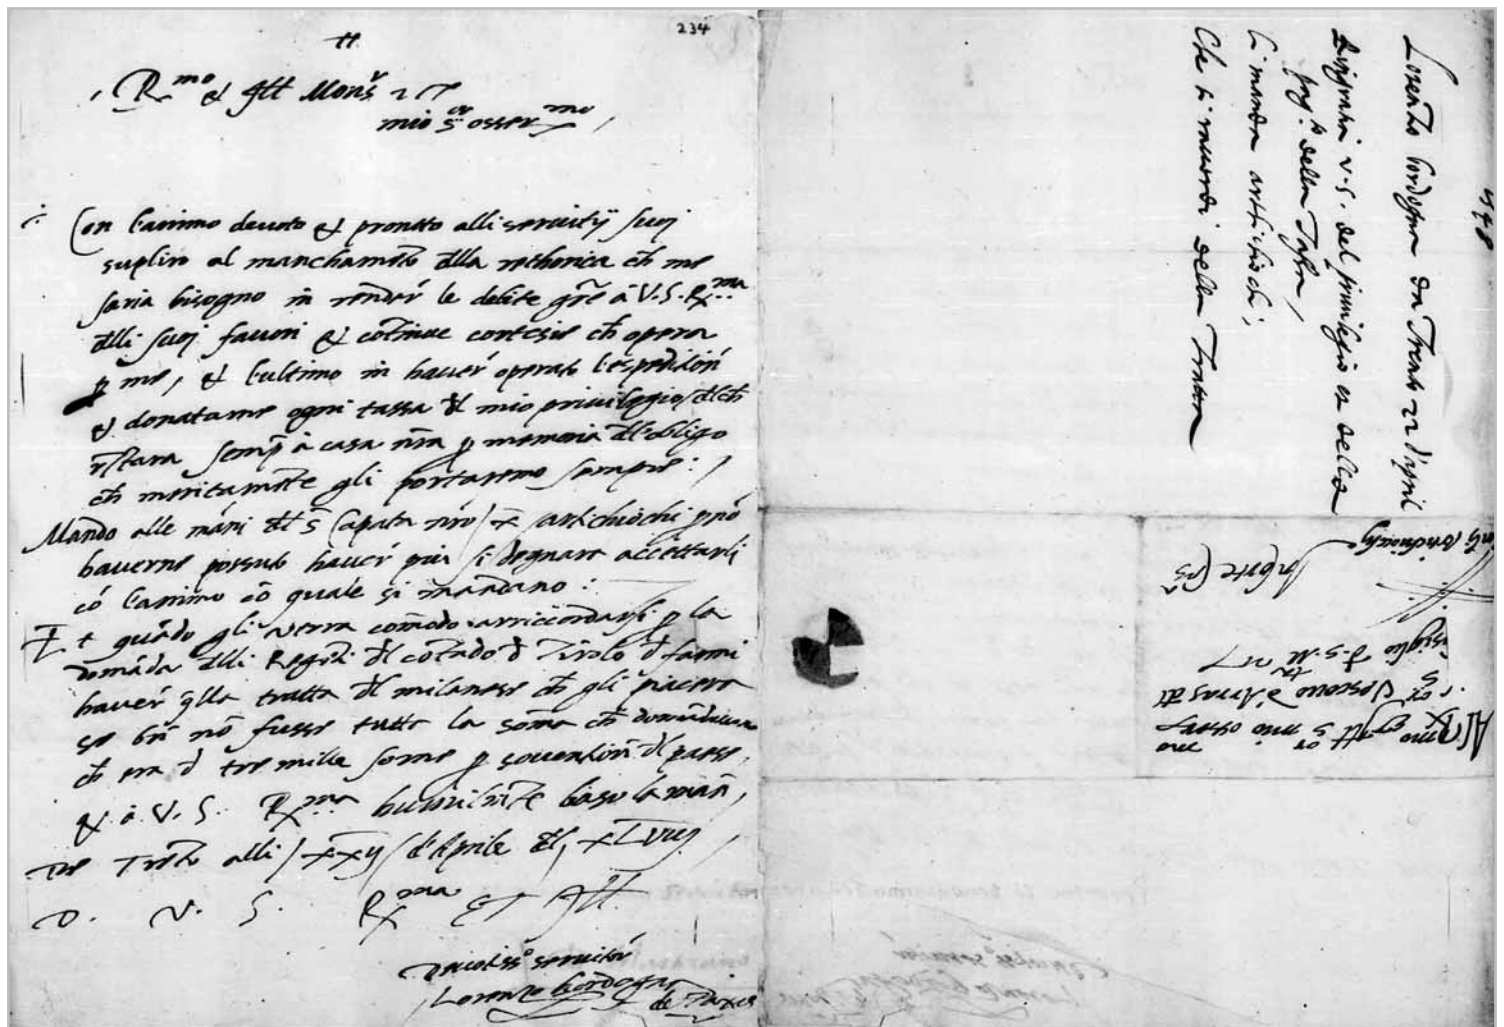 234
R.mo et Ill. Mons.r
mio s.or osser.mo
Con l'animo devoto et prontto alli servitij suoj
supliro al manchameto dlla rethorica ch me
saria bisogno in render le debite gr̃e à V.S. R.ma
dlli suoj favori et cotinue cortesie ch opera
p me, et l'ultimo in haver operato l'espedition
et donatame ogni tassa dl mio privilegio, dl ch
restara semp à casa nr̃a p memoria dl obligo
ch meritamete gli portaremo sempre:
Mando alle mani dl s. Capata nr̃o / x / artichiochi p no
haverne possuto haver piu si degnara accettarli
có l'animo có quale si mandano:
Et quãdo gli verra comodo arricordarsi p la
domãda dlli Regẽti dl cotado d Tirolo d farmi
haver q̃lla tratta dl milanese ch gli piacera
se bñ nõ fusse tutta la soma ch domãdava
ch era d tre mille some p souention dl paese,
et à V. S. R.ma humilmte baso la man,
De Treto alli / xxij / d'Aprile dl xLviij
D. V. S. R.ma et Ill.
Devotiss.o servitor
Lorenzo bordogna
de Taxis
1548
Lorenzo bordogna da Trento 22 d'april
Ringratia V.S. del privilegio et della
della Tassa,
li manda artichiochi,
Che si ricordi della Tratta
Al R.mo et Ill.
s.or mio osser.mo
s.or Vescovo d'Aras dl
siglio d S. M.ta
In corte